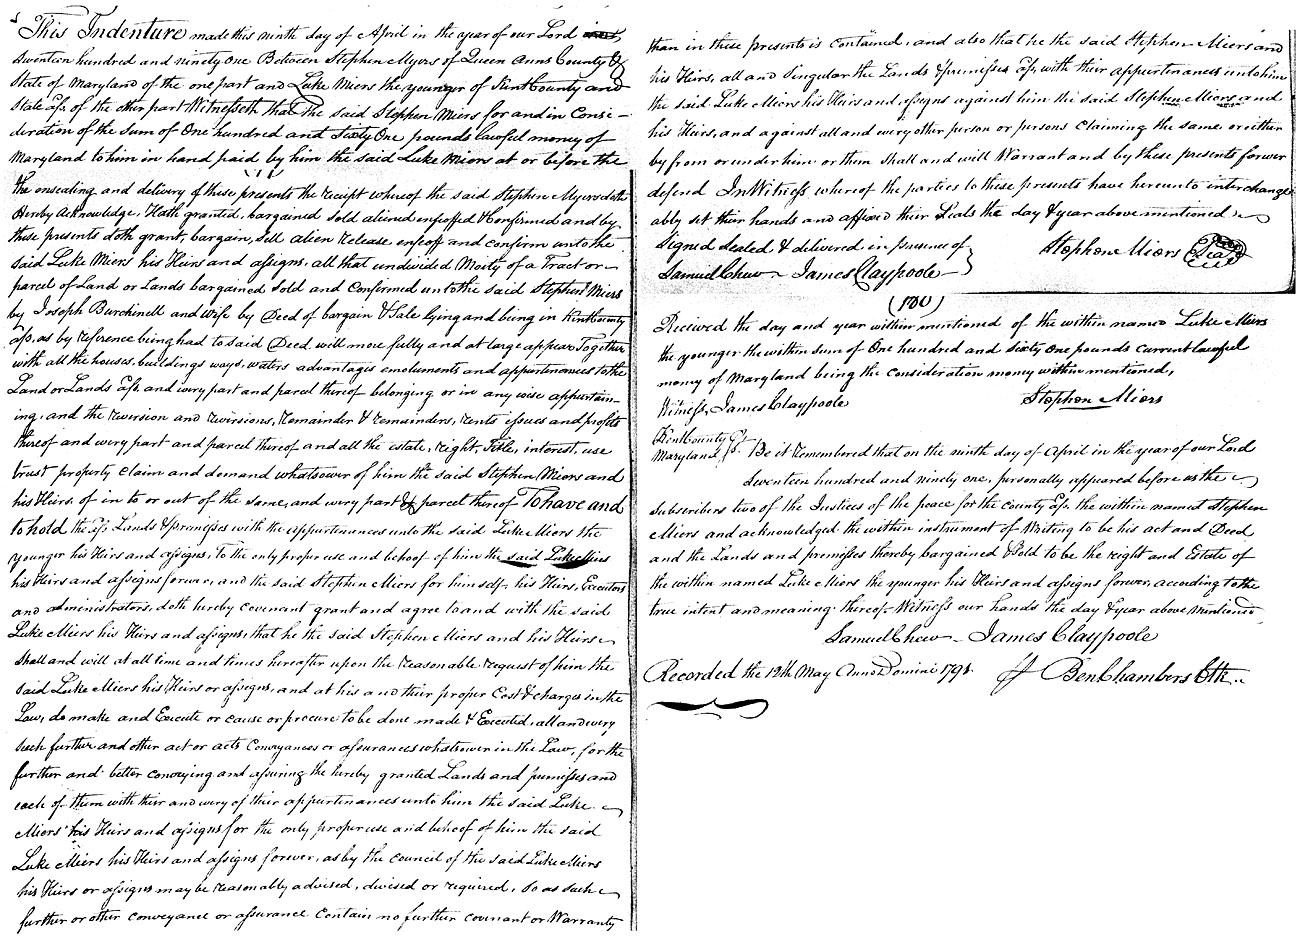 This Indenture made this ninth day of April in the year of our Lord
Seventeen hundred and ninety one Between Stephen Myers of Queen Anns County &
State of Maryland of the one part and Luke Miers the younger of Kent County and
State afs. of the other part Witnesseth that the said Stephen Miers for and in Consi-
deration of the sum of One hundred and Sixty One pounds lawful money of
Maryland to him in hand paid by him the said Luke Miers at or before the
the ensealing and delivery of these presents the receipt whereof the said Stephen Myers doth
Hereby Acknowledge, Hath granted, bargained sold aliened enfeoffed & Confirmed and by
these presents doth grant, bargain, sell alien release enfeoff and confirm unto the
said Luke Miers his Heirs and assigns, all that undivided Moity of a Tract or
parcel of Land or Lands bargained sold and Confirmed unto the said Stephen Miers
by Joseph Burchinell and wife by Deed of bargain & Sale lying and being in Kent County
afs. as by reference being had to said Deed will more fully and at large appear Together
with all the houses, buildings ways, waters advantages emoluments and appurtenances to the
Land or Lands afs. and every part and parcel thereof belonging or in any wise appertain-
ing, and the reversion and reversions, remainder & remainders, rents issues and profits
thereof and every part and parcel thereof and all the estate, right, Title, interest, use
trust property claim and demand whatsoever of him the said Stephen Miers and
his Heirs of in to or out of the same, and every part & parcel thereof To have and
to hold the afs. Lands & premisses with the appurtenances unto the said Luke Miers the
younger his Heirs and assigns, to the only proper use and behoof of him the said Luke Miers
his Heirs and assigns forever, and the said Stephen Miers for himself, his Heirs, Executors
and administrators, doth hereby covenant grant and agree to and with the said
Luke Miers his Heirs and assigns, that he the said Stephen Miers and his Heirs
shall and will at all time and times hereafter upon the reasonable request of him the
said Luke Miers his Heirs or assigns, and at his and their proper Cost & charges in the
Law, do make and Execute or cause or procure to be done made & Executed, all and every
such further and other act or acts Conveyances or assurances whatsoever in the Law, for the
further and better conveying and assuring the hereby granted Lands and premisses and
each of them with their and every of their appurtenances unto him the said Luke
Miers his Heirs and assigns for the only proper use and behoof of him the said
Luke Miers his Heirs and assigns forever, as by the council of the said Luke Miers
his Heirs or assigns may be reasonably advised, devised or required, so as such
further or other conveyance or assurance Contain no further covenant or Warranty
than in these presents is contained, and also that he the said Stephen Miers and
his Heirs, all and Singular the Lands & premisses afs. with their appurtenances unto him
the said Luke Miers his Heirs and assigns against him the said Stephen Miers and
his Heirs, and against all and every other person or persons claiming the same or either
by from or under him or them shall and will Warrant and by these presents forever
defend In Witness whereof the parties to these presents have hereunto interchange
ably set their hands and affixed their Seals the day & year above mentioned
Signed Sealed & delivered in presence of
Samuel Chew James Claypoole
Stephen Miers Seal
(180)
Recieved the day and year within mentioned of the within named Luke Miers
the younger the within sum of One hundred and sixty one pounds current lawful
money of Maryland being the consideration money within mentioned,
Witness, James Claypoole Stephen Miers
Kent County &
Maryland ss. Be it Remembered that on the ninth day of April in the year of our Lord
Seventeen hundred and ninety one, personally appeared before us the
Subscribers two of the Justices of the peace for the county afs. the within named Stephen
Miers and acknowledged the within instrument of Writing to be his act and Deed
and the Lands and premisses thereby bargained & Sold to be the right and Estate of
the within named Luke Miers the younger his Heirs and assigns forever, according to the
true intent and meaning thereof Witness our hands the day & year above mentioned
Samuel Chew James Claypoole
Recorded the 12th May Anno Domini 1791. Ben Chambers Clk..